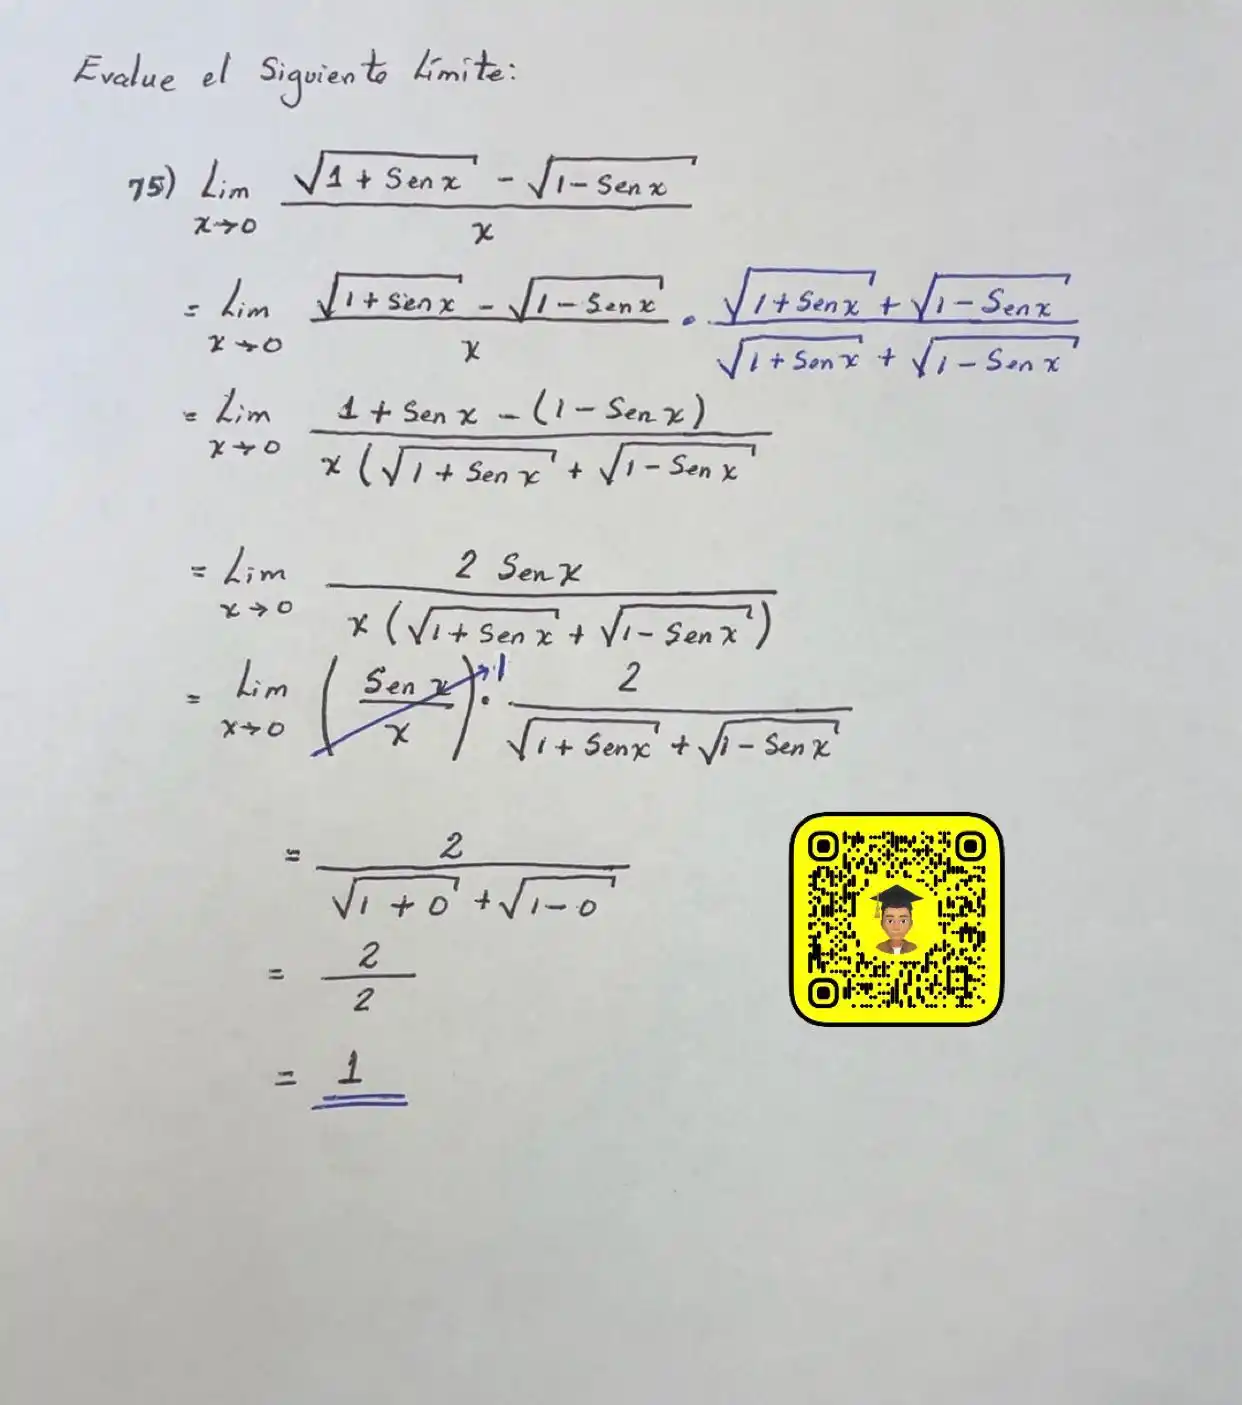 Evalue el Siguiente Límite:
75) Lim x→0 (√(1 + Sen x) - √(1 - Sen x)) / x
= Lim x→0 (√(1 + Sen x) - √(1 - Sen x)) / x · (√(1 + Sen x) + √(1 - Sen x)) / (√(1 + Sen x) + √(1 - Sen x))
= Lim x→0 (1 + Sen x - (1 - Sen x)) / (x (√(1 + Sen x) + √(1 - Sen x))
= Lim x→0 2 Sen x / (x (√(1 + Sen x) + √(1 - Sen x)))
= Lim x→0 (Sen x / x) 1 · 2 / (√(1 + Sen x) + √(1 - Sen x))
= 2 / (√(1 + 0) + √(1 - 0))
= 2 / 2
= 1